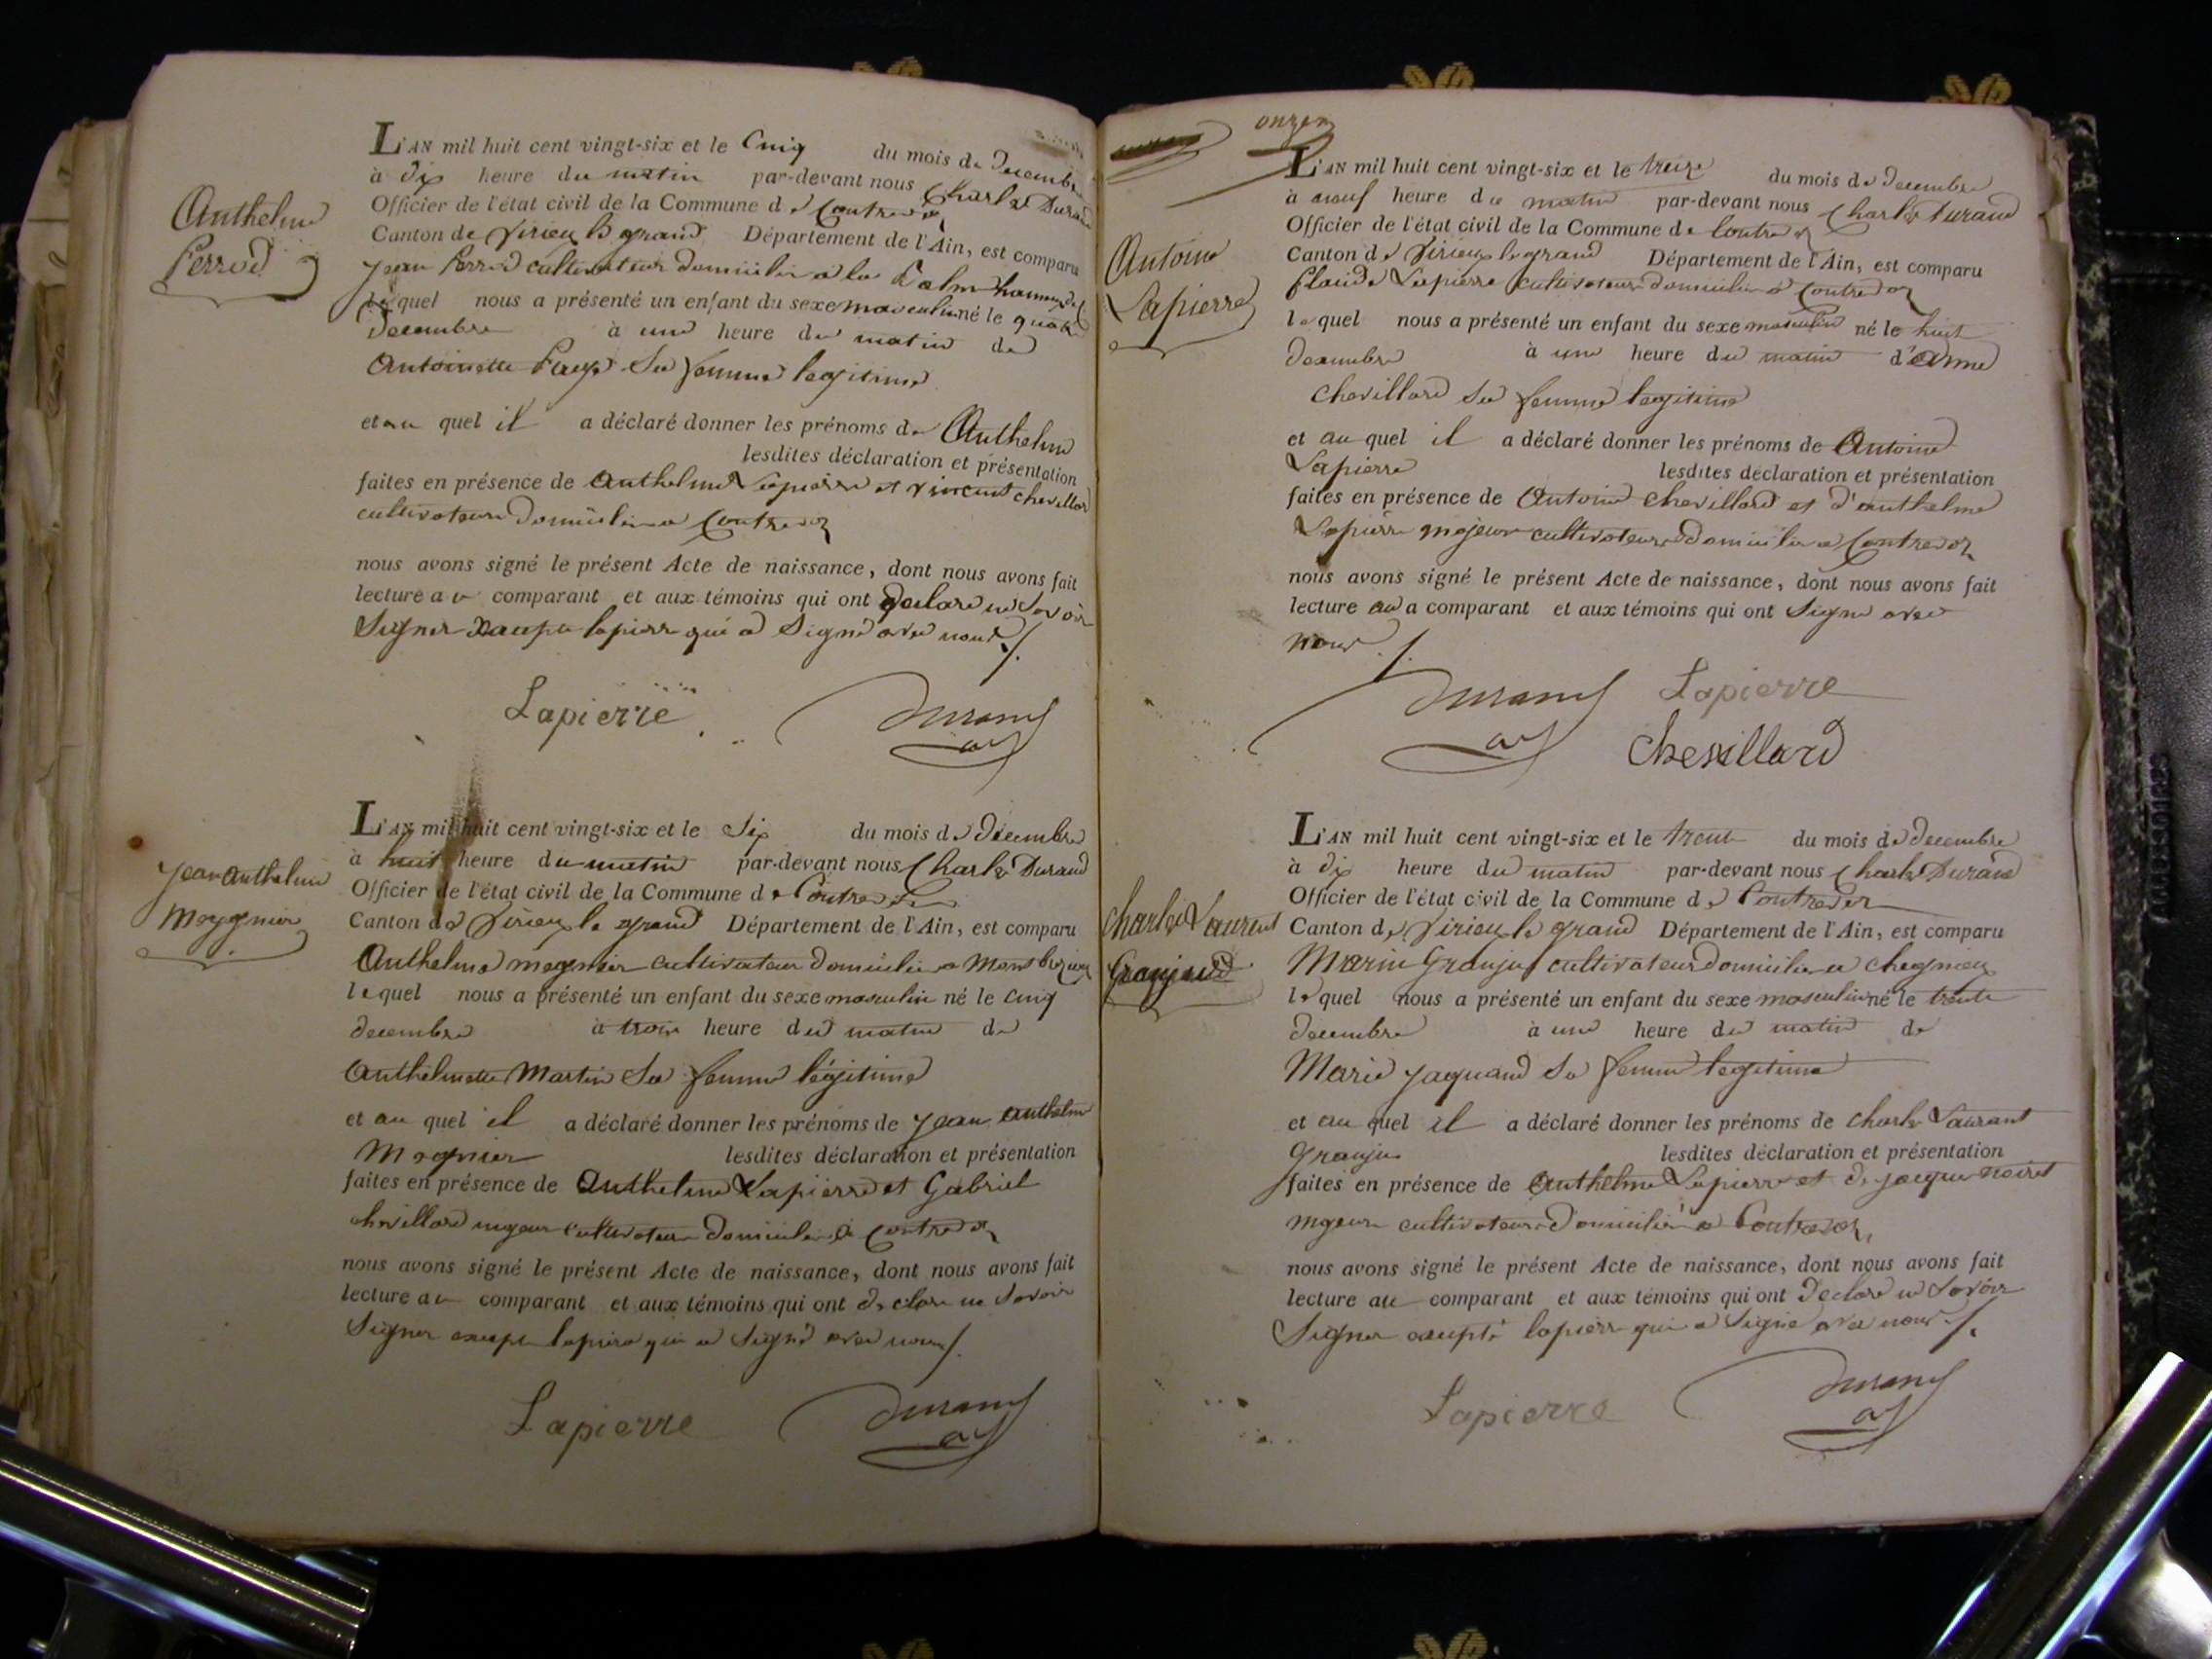 Anthelme
Perrod
L'AN mil huit cent vingt-six et le Cinq du mois de Decembre
à dix heure du matin par-devant nous Charle Durand
Officier de l'état civil de la Commune de Contrevoz
Canton de Virieu le grand Département de l'Ain, est comparu
Jean Perrod cultivateur domicilié à la
lequel nous a présenté un enfant du sexe masculin né le quatre
decembre à une heure du matin de
Antoinette sa femme legitime
et au quel il a déclaré donner les prénoms de Anthelme
lesdites déclaration et présentation
faites en présence de Anthelme Lapierre et vincent chevillard
cultivateurs domicilié a Contrevoz
nous avons signé le présent Acte de naissance, dont nous avons fait
lecture au comparant et aux témoins qui ont declare ne savoir
Signer excepte lapierre qui a Signé avec nous ./.
Lapierre Durand
Jean Anthelme
Meygnier
L'AN mil huit cent vingt-six et le Six du mois de Decembre
à huit heure du matin par-devant nous Charle Durand
Officier de l'état civil de la Commune de
Canton de Virieu le grand Département de l'Ain, est comparu
Anthelme cultivateur domicilié a
lequel nous a présenté un enfant du sexe masculin né le cinq
decembre à trois heure du matin de
Anthelmette Martin Sa femme légitime
et au quel il a déclaré donner les prénoms de Jean Anthelme
lesdites déclaration et présentation
faites en présence de Anthelme Lapierre et Gabriel
chevillard majeur cultivateur domicilié à Contrevoz
nous avons signé le présent Acte de naissance, dont nous avons fait
lecture au comparant et aux témoins qui ont declare ne Savoir
Signer excepte lapierre qui a Signé avec nous ./.
Lapierre Durand
onzem
Antoine
Lapierre
L'AN mil huit cent vingt-six et le treize du mois de Decembre
à neuf heure du matin par-devant nous Charle Durand
Officier de l'état civil de la Commune de Contrevoz
Canton de Virieu le grand Département de l'Ain, est comparu
Claude Lapierre cultivateur domicilié a Contrevoz
lequel nous a présenté un enfant du sexe masculin né le huit
decembre à une heure du matin d'Anne
Chevillard Sa femme legitime
et au quel il a déclaré donner les prénoms de Antoine
Lapierre lesdites déclaration et présentation
faites en présence de Antoine Chevillard et d'anthelme
Lapierre majeur cultivateurs domicilié a Contrevoz
nous avons signé le présent Acte de naissance, dont nous avons fait
lecture au comparant et aux témoins qui ont Signe avec
nous ./.
Durand Lapierre
Chevillard
Charle Laurent
L'AN mil huit cent vingt-six et le trente du mois de decembre
à dix heure du matin par-devant nous Charle Durand
Officier de l'état civil de la Commune de
Canton de Virieu le grand Département de l'Ain, est comparu
Marin Granju cultivateur domicilié a
lequel nous a présenté un enfant du sexe masculin né le trente
decembre à une heure du matin de
Marie Jaquand Sa femme legitime
et au quel il a déclaré donner les prénoms de Charle Laurant
Granju lesdites déclaration et présentation
faites en présence de Anthelme Lapierre et de jacque noiret
majeurs cultivateurs domicilié a Contrevoz
nous avons signé le présent Acte de naissance, dont nous avons fait
lecture au comparant et aux témoins qui ont Declare ne Savoir
Signer excepté lapierre qui a Signé avec nous ./.
Lapierre Durand